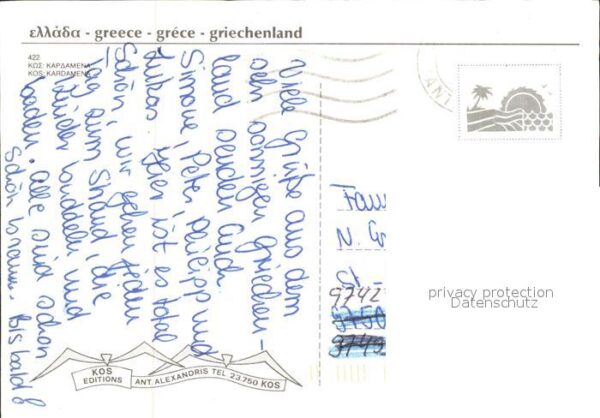 ελλάδα - greece - gréce - griechenland
422
ΚΩΣ: ΚΑΡΔΑΜΕΝΑ
KOS: KARDAMENA
Viele Grüße aus dem
sehr sonnigen Griechen-
land senden Euch
Simone, Peter, Philipp und
Lukas. Hier ist es total
schön, wir gehen jeden
Tag zum Strand, die
Kinder buddeln und
baden. Alle sind schon
schön braun. Bis bald
ΑΝΤ
Fam
N. Gr
9742
9750
9749
privacy protection
Datenschutz
KOS
EDITIONS
ANT. ALEXANDRIS TEL 23.750 KOS